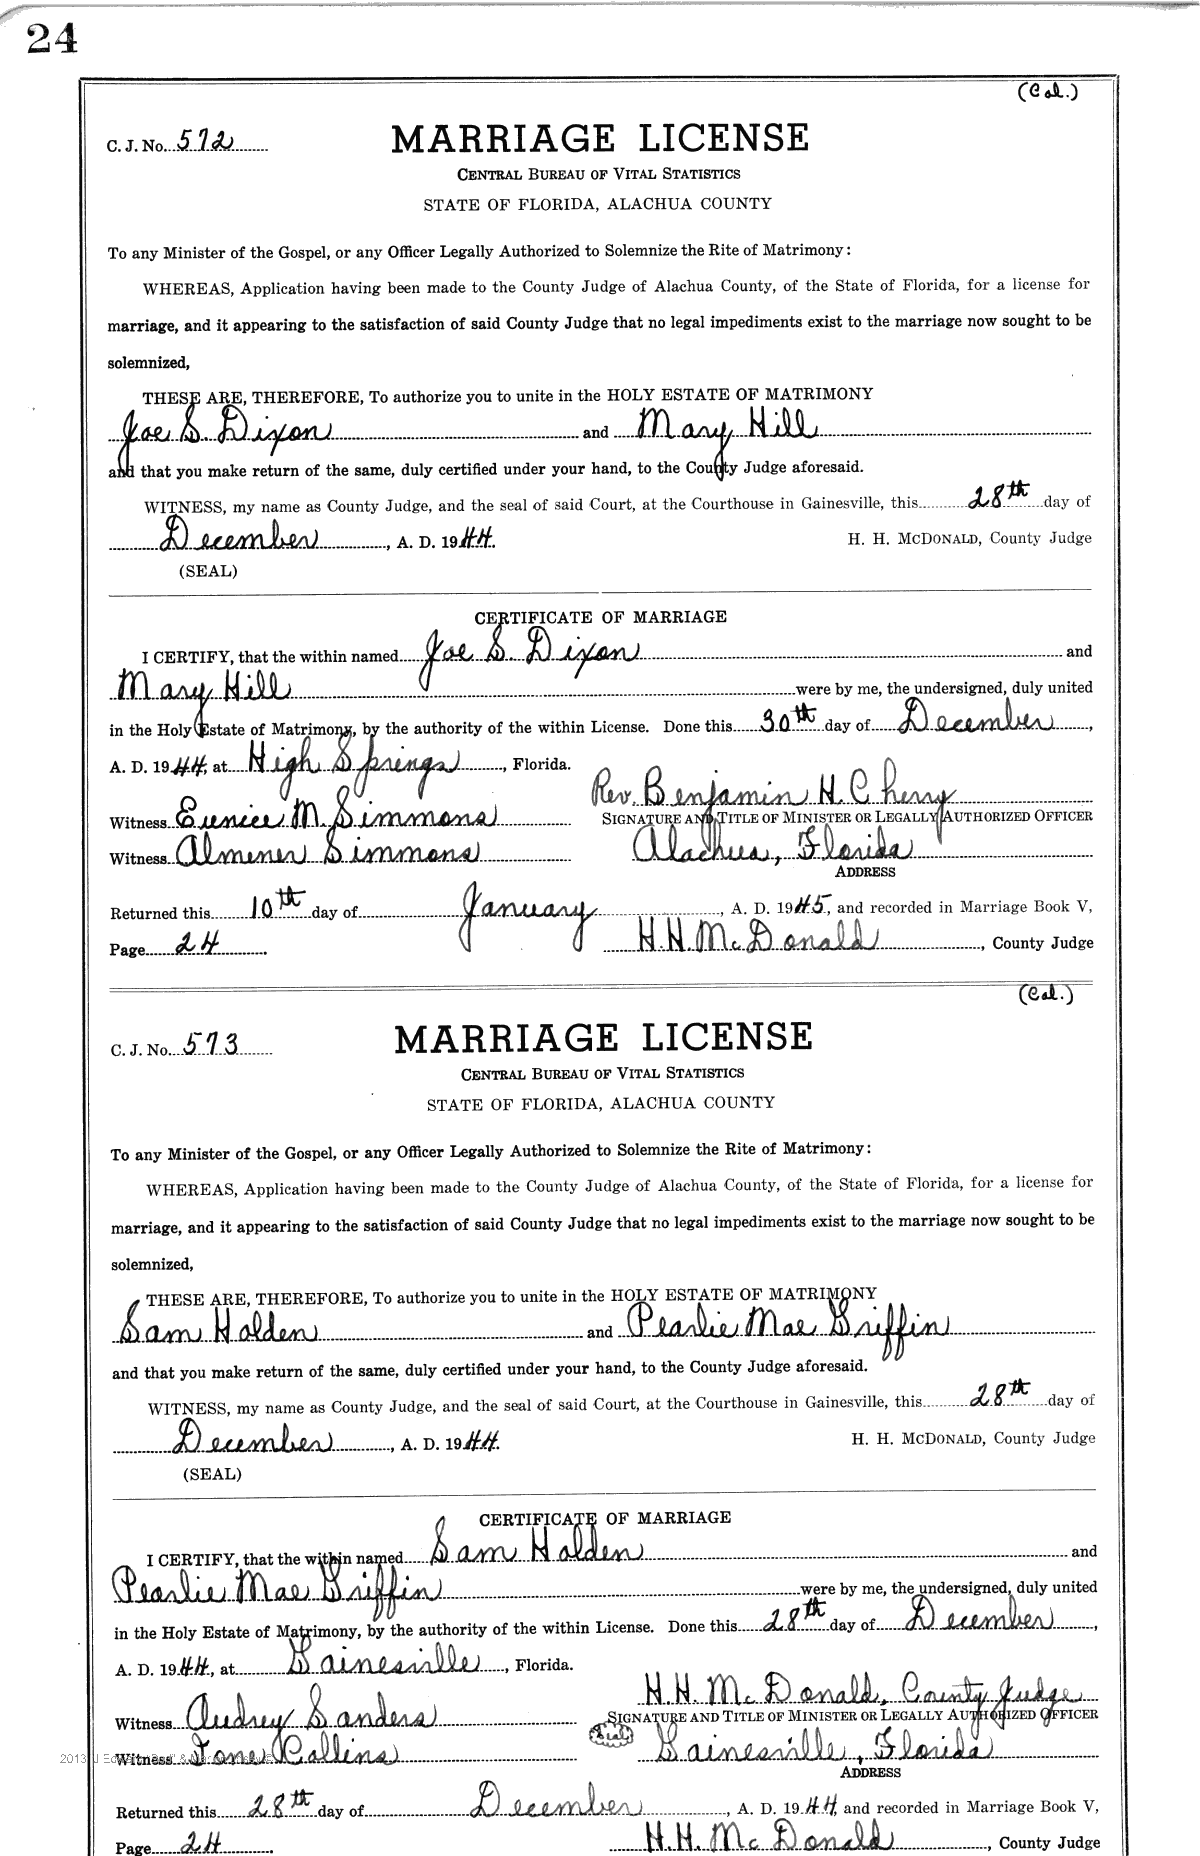 24
(Col.)
C. J. No. 572
MARRIAGE LICENSE
CENTRAL BUREAU OF VITAL STATISTICS
STATE OF FLORIDA, ALACHUA COUNTY
To any Minister of the Gospel, or any Officer Legally Authorized to Solemnize the Rite of Matrimony:
WHEREAS, Application having been made to the County Judge of Alachua County, of the State of Florida, for a license for
marriage, and it appearing to the satisfaction of said County Judge that no legal impediments exist to the marriage now sought to be
solemnized,
THESE ARE, THEREFORE, To authorize you to unite in the HOLY ESTATE OF MATRIMONY
Joe S. Dixon and Mary Hill
and that you make return of the same, duly certified under your hand, to the County Judge aforesaid.
WITNESS, my name as County Judge, and the seal of said Court, at the Courthouse in Gainesville, this 28th day of
December, A. D. 1944. H. H. MCDONALD, County Judge
(SEAL)
CERTIFICATE OF MARRIAGE
I CERTIFY, that the within named Joe S. Dixon and
Mary Hill were by me, the undersigned, duly united
in the Holy Estate of Matrimony, by the authority of the within License. Done this 30th day of December,
A. D. 1944, at High Springs, Florida.
Rev. Benjamin H. Cherry
Witness Eunice M. Simmons SIGNATURE AND TITLE OF MINISTER OR LEGALLY AUTHORIZED OFFICER
Witness Almener Simmons Alachua, Florida
ADDRESS
Returned this 10th day of January, A. D. 1945, and recorded in Marriage Book V,
Page 24. H. H. McDonald, County Judge
(Col.)
C. J. No. 573
MARRIAGE LICENSE
CENTRAL BUREAU OF VITAL STATISTICS
STATE OF FLORIDA, ALACHUA COUNTY
To any Minister of the Gospel, or any Officer Legally Authorized to Solemnize the Rite of Matrimony:
WHEREAS, Application having been made to the County Judge of Alachua County, of the State of Florida, for a license for
marriage, and it appearing to the satisfaction of said County Judge that no legal impediments exist to the marriage now sought to be
solemnized,
THESE ARE, THEREFORE, To authorize you to unite in the HOLY ESTATE OF MATRIMONY
Sam Holden and Pearlie Mae Griffin
and that you make return of the same, duly certified under your hand, to the County Judge aforesaid.
WITNESS, my name as County Judge, and the seal of said Court, at the Courthouse in Gainesville, this 28th day of
December, A. D. 1944. H. H. MCDONALD, County Judge
(SEAL)
CERTIFICATE OF MARRIAGE
I CERTIFY, that the within named Sam Holden and
Pearlie Mae Griffin were by me, the undersigned, duly united
in the Holy Estate of Matrimony, by the authority of the within License. Done this 28th day of December,
A. D. 1944, at Gainesville, Florida.
H. H. McDonald, County Judge
Witness Audrey Sanders SIGNATURE AND TITLE OF MINISTER OR LEGALLY AUTHORIZED OFFICER
(Seal)
Witness Collins Gainesville, Florida
2013
ADDRESS
Returned this 28th day of December, A. D. 1944, and recorded in Marriage Book V,
Page 24. H. H. McDonald, County Judge